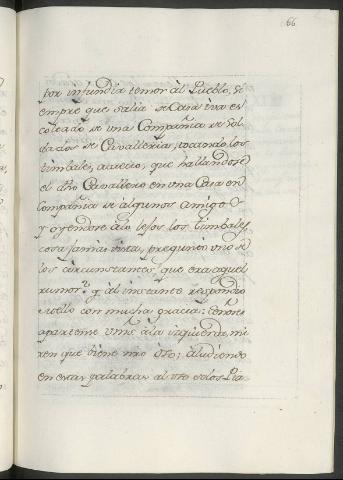 66
por infundir temor àl Pueblo, si
empre que salia de Casa iva es
coltado de una Compañia de Sol
dados de Cavalleria, tocando los
timbales, acaecio, que hallandose
el dho Cavallero en una Casa en
Compañia de algunos amigos
y oyendose à lo lejos los timbales
cosa jamas vista, preguntó uno de
los circunstantes que era aquel
rumor? y àl instante respondio
con mucha gracia:
apartense Vms à la izquierda, mi
ren que viene nro oso; aludiendo
en estas palabras al oso